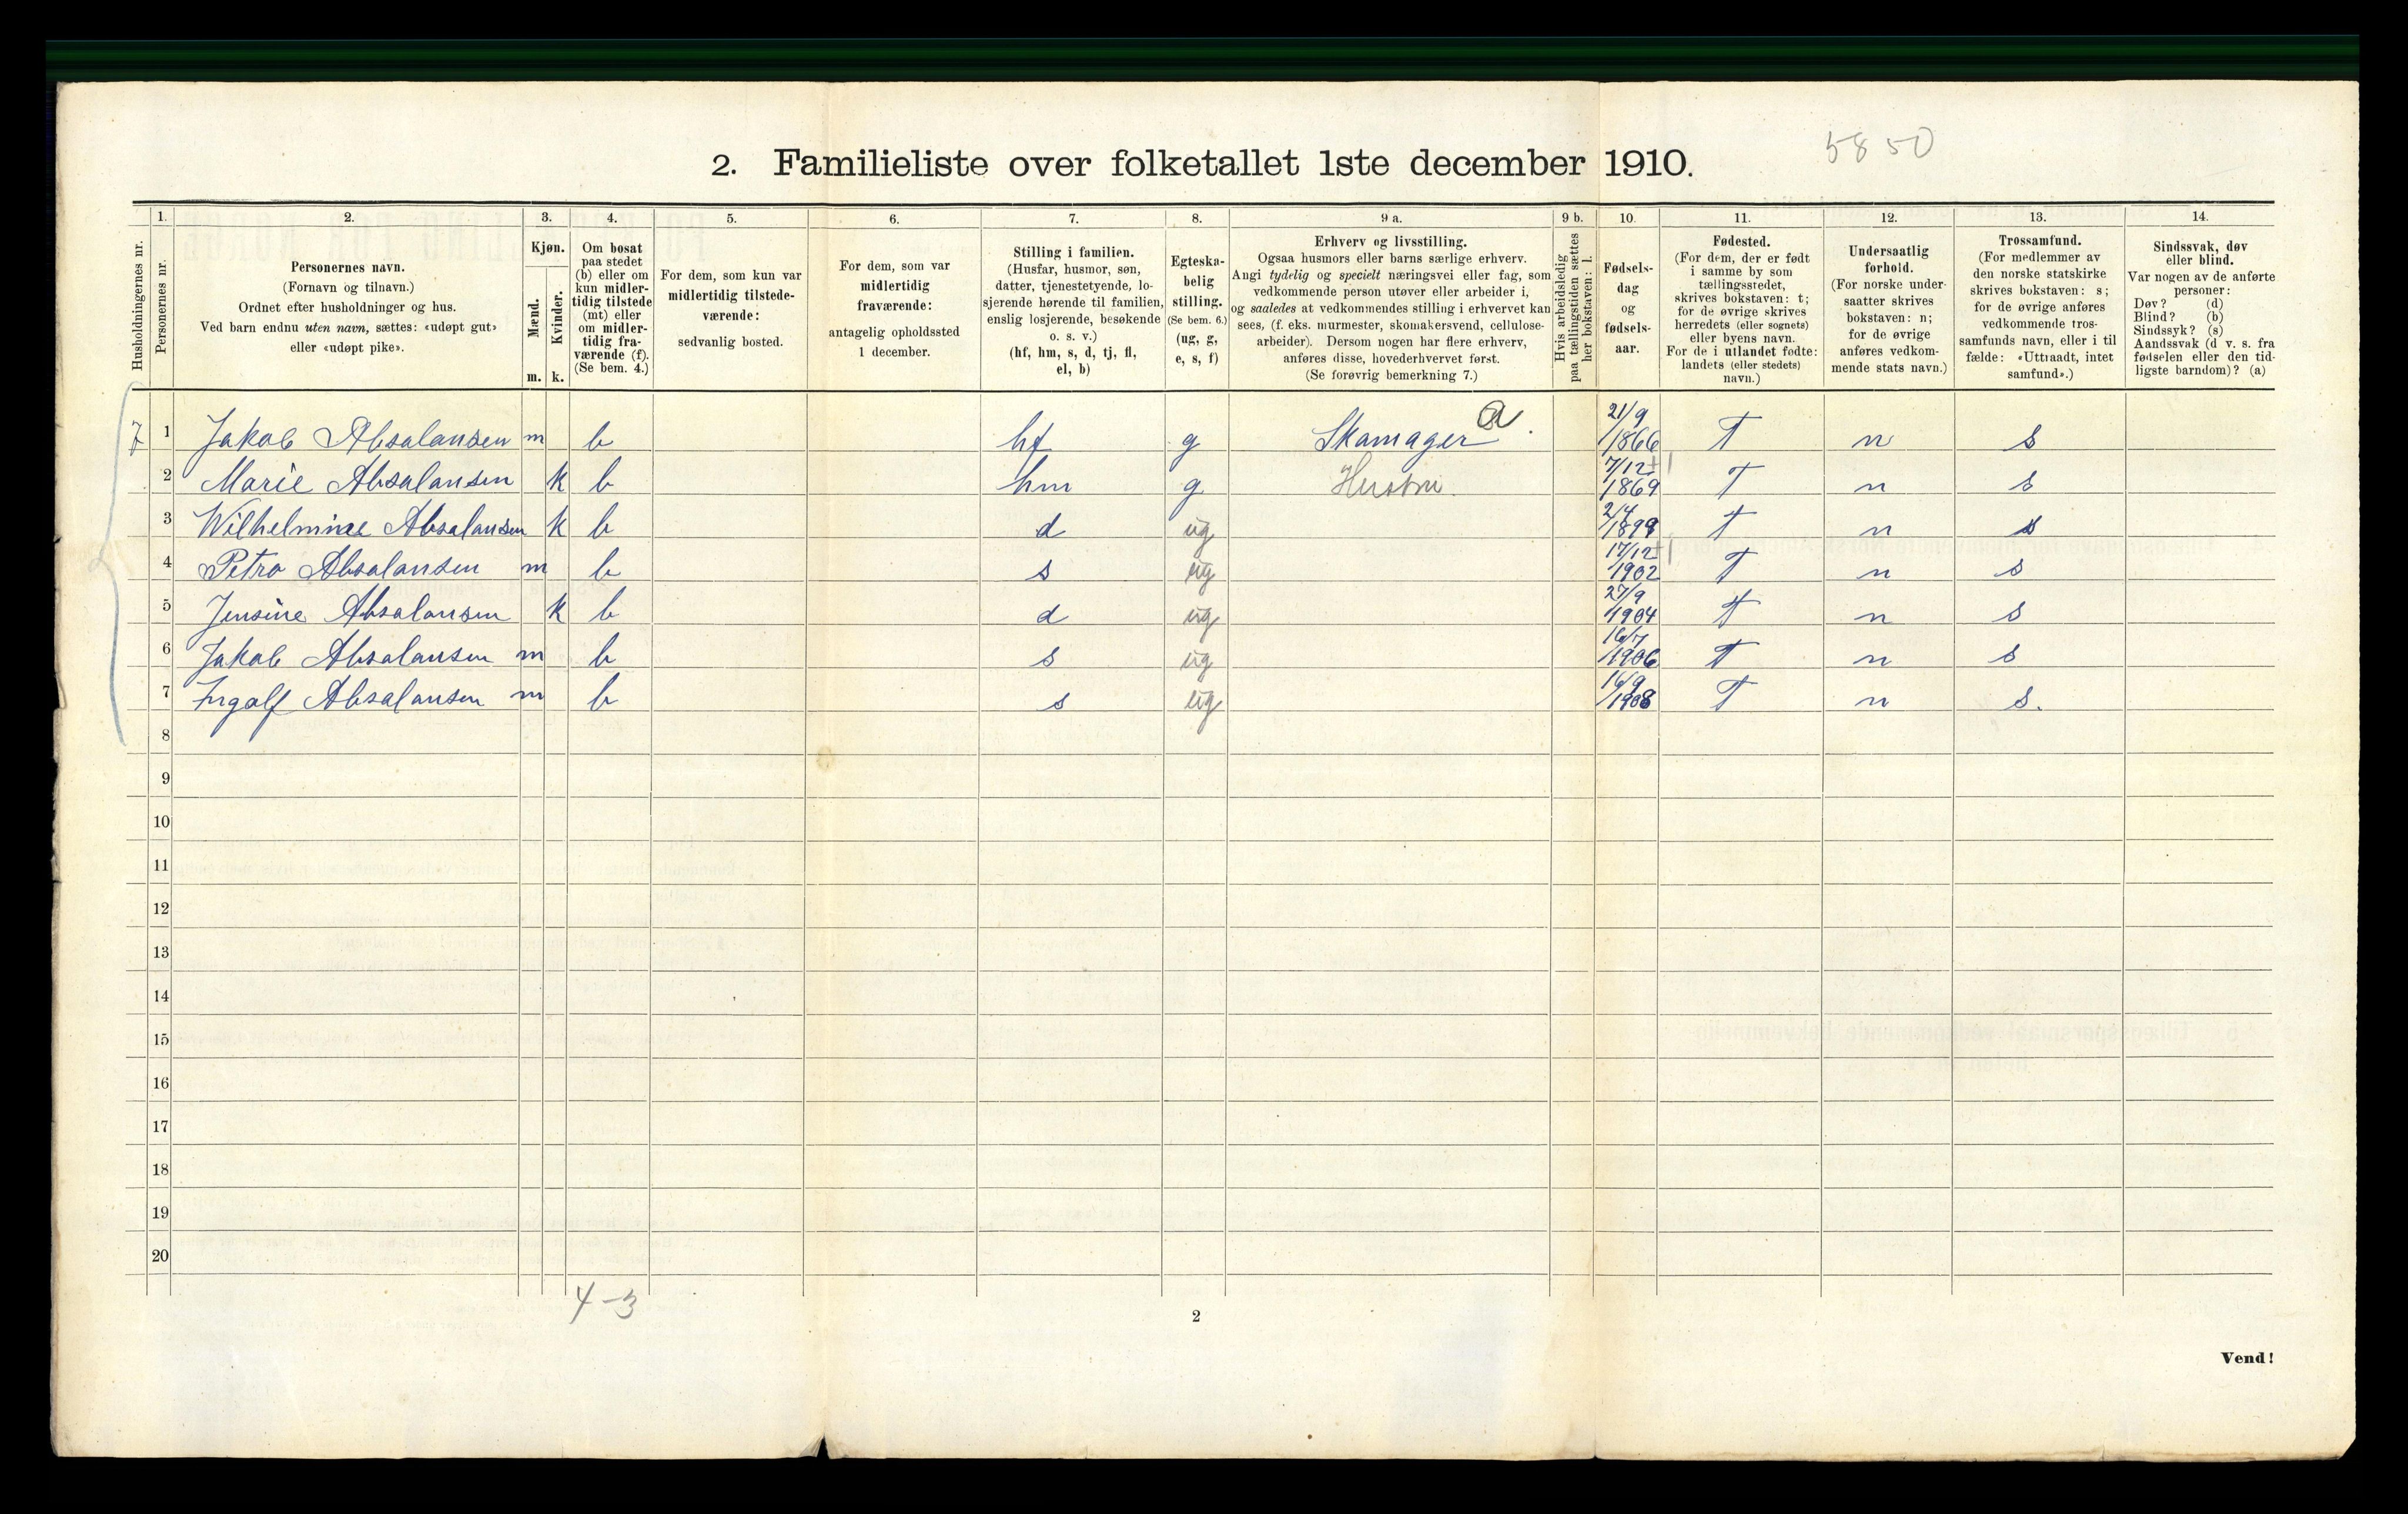 5850
2. Familieliste over folketallet 1ste december 1910.
Husholdningernes nr.
1. Personernes nr.
2. Personernes navn. (Fornavn og tilnavn.) Ordnet efter husholdninger og hus. Ved barn endnu uten navn, sættes: «udøpt gut» eller «udøpt pike».
3. Kjøn. Mænd. m. Kvinder. k.
4. Om bosat paa stedet (b) eller om kun midlertidig tilstede (mt) eller om midlertidig fraværende (f). (Se bem. 4.)
5. For dem, som kun var midlertidig tilstedeværende: sedvanlig bosted.
6. For dem, som var midlertidig fraværende: antagelig opholdssted 1 december.
7. Stilling i familien. (Husfar, husmor, søn, datter, tjenestetyende, losjerende hørende til familien, enslig losjerende, besøkende o. s. v.) (hf, hm, s, d, tj, fl, el, b)
8. Egteskabelig stilling. (Se bem. 6.) (ug, g, e, s, f)
9 a. Erhverv og livsstilling. Ogsaa husmors eller barns særlige erhverv. Angi tydelig og specielt næringsvei eller fag, som vedkommende person utøver eller arbeider i, og saaledes at vedkommendes stilling i erhvervet kan sees, (f. eks. murmester, skomakersvend, cellulosearbeider). Dersom nogen har flere erhverv, anføres disse, hovederhvervet først. (Se forøvrig bemerkning 7.)
9 b. Hvis arbeidsledig paa tællingstiden sættes her bokstaven: l.
10. Fødselsdag og fødselsaar.
11. Fødested. (For dem, der er født i samme by som tællingsstedet, skrives bokstaven: t; for de øvrige skrives herredets (eller sognets) eller byens navn. For de i utlandet fødte: landets (eller stedets) navn.)
12. Undersaatlig forhold. (For norske undersaatter skrives bokstaven: n; for de øvrige anføres vedkommende stats navn.)
13. Trossamfund. (For medlemmer av den norske statskirke skrives bokstaven: s; for de øvrige anføres vedkommende trossamfunds navn, eller i tilfælde: «Uttraadt, intet samfund».)
14. Sindssvak, døv eller blind. Var nogen av de anførte personer: Døv? (d) Blind? (b) Sindssyk? (s) Aandssvak (d v. s. fra fødselen eller den tidligste barndom)? (a)
7 1 Jakob Absalansen m b hf g Skamager a. 21/9 1866 T n s
2 Marie Absalansen k b hm g Hustru 7/12 1869 T n s
3 Wilhelmine Absalansen k b d ug 2/4 1899 T n s
4 Petro Absalansen m b s ug 17/12 1902 T n s
5 Jensine Absalansen k b d ug 27/9 1904 T n s
6 Jakob Absalansen m b s ug 16/7 1906 T n s
7 Ingolf Absalansen m b s ug 16/9 1908 T n s.
8
9
10
11
12
13
14
15
16
17
18
19
20
4-3
2
Vend!